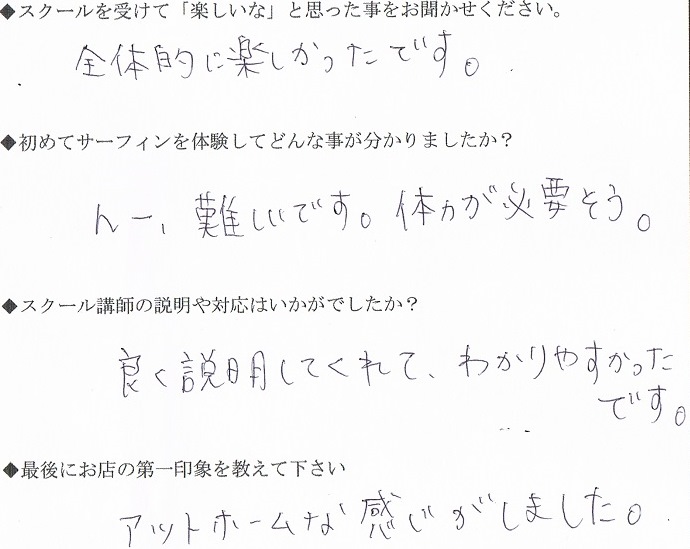 ◆スクールを受けて「楽しいな」と思った事をお聞かせください。
全体的に楽しかったです。
◆初めてサーフィンを体験してどんな事が分かりましたか？
んー、難しいです。体力が必要そう。
◆スクール講師の説明や対応はいかがでしたか？
良く説明してくれて、わかりやすかった
です。
◆最後にお店の第一印象を教えて下さい
アットホームな感じがしました。